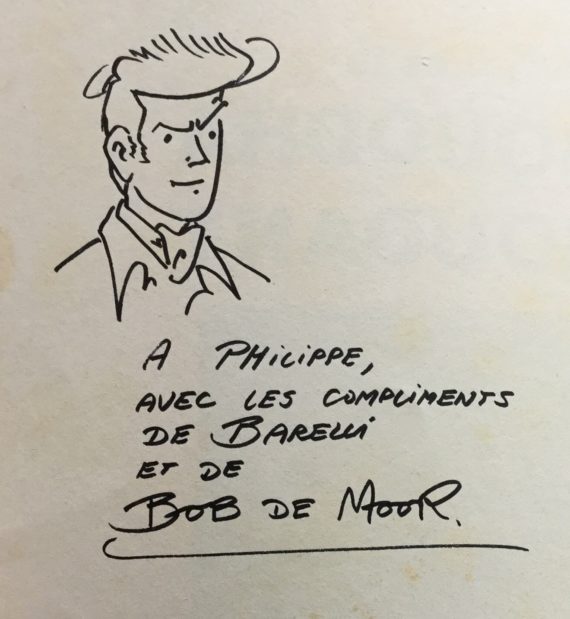 A PHILIPPE,
AVEC LES COMPLIMENTS
DE BARELLI
ET DE
BOB DE MOOR.